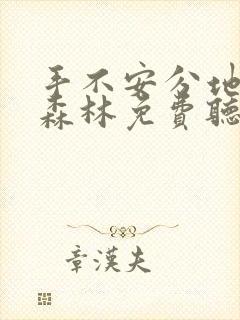 手不安分地
森林免费聽
章漢夫